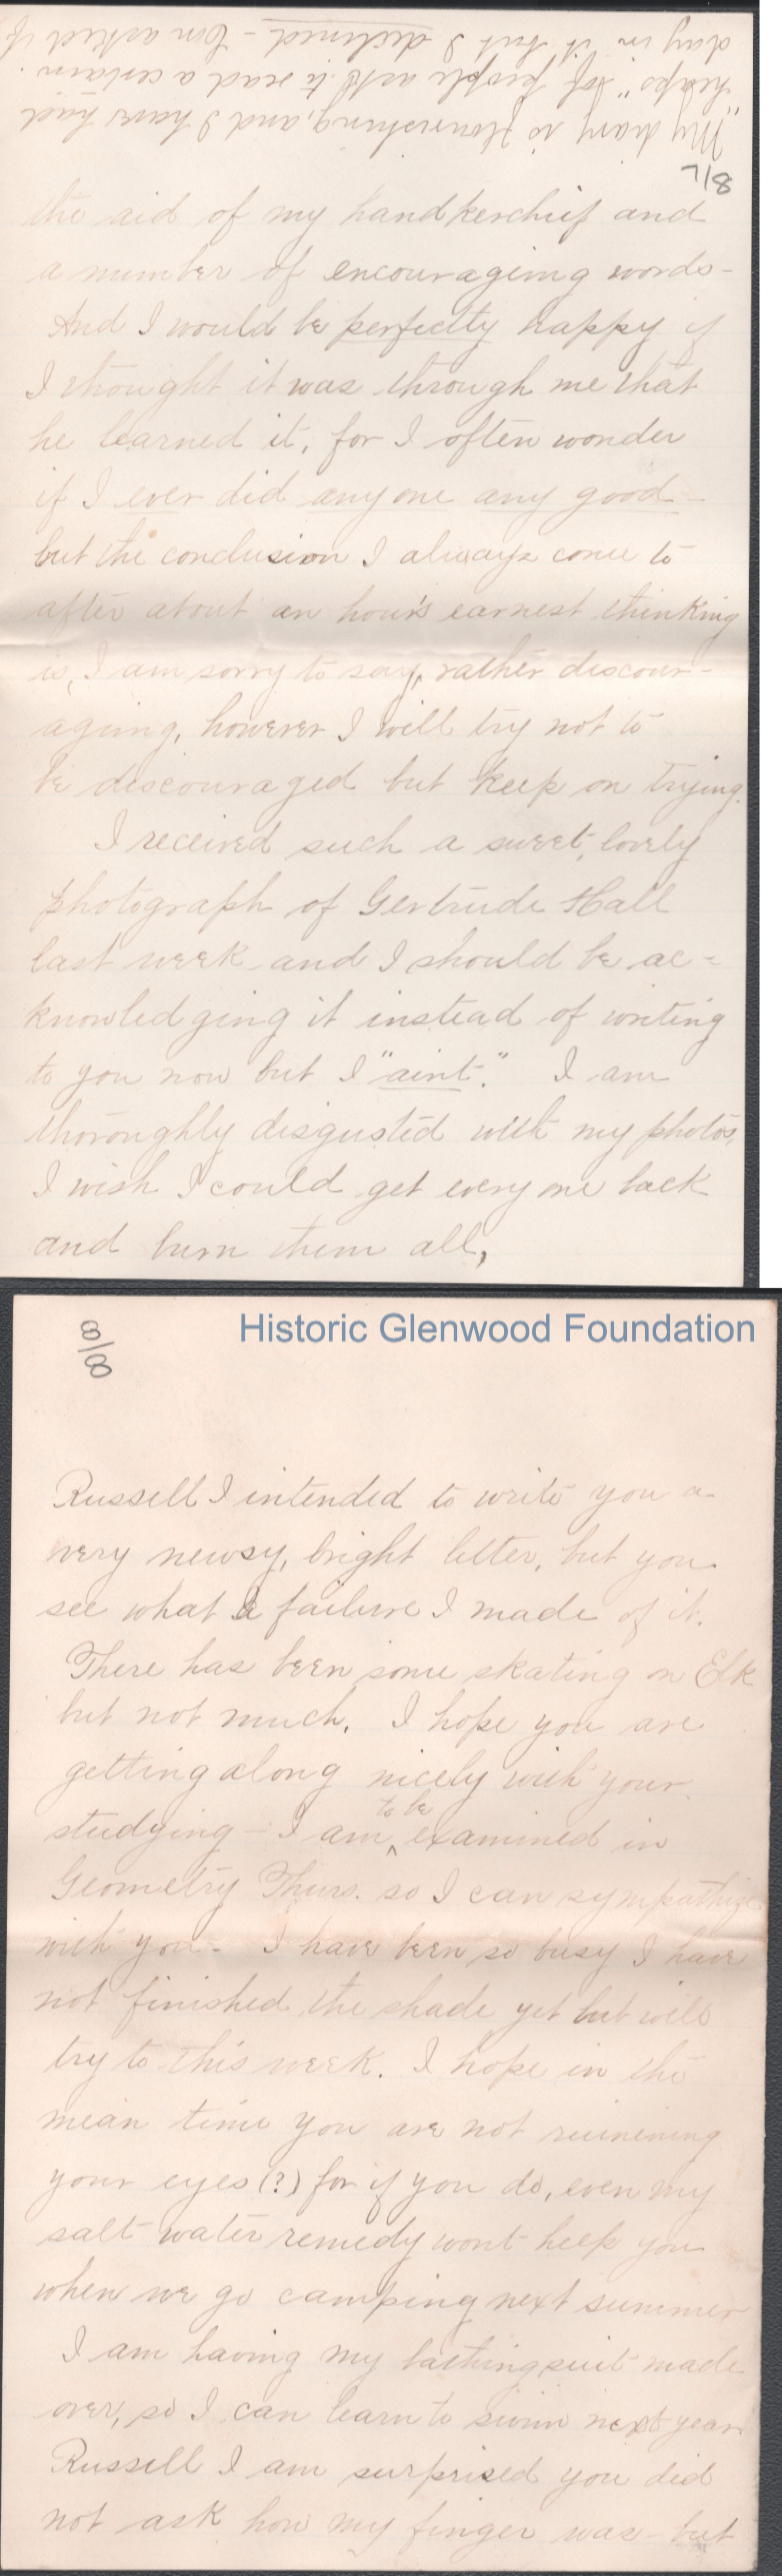 "My diary is flourishing, and I have had
"heaps" of people ask to read a certain
day in it but I declined - Tom asked if
7/8
the aid of my handkerchief and
a number of encouraging words -
And I would be perfectly happy if
I thought it was through me that
he learned it, for I often wonder
if I ever did anyone any good -
but the conclusion I always come to
after about an hour's earnest thinking
is, I am sorry to say, rather discour-
aging, however I will try not to
be discouraged but keep on trying.
I received such a sweet, lovely
photograph of Gertrude Hall
last week and I should be ac=
knowledging it instead of writing
to you now but I "aint." I am
thoroughly disgusted with my photos,
I wish I could get every one back
and burn them all,
8/8
Historic Glenwood Foundation
Russell I intended to write you a
very newsy, bright letter, but you
see what a failure I made of it.
There has been some skating on Elk
but not much. I hope you are
getting along nicely with your
studying - I am to be examined in
Geometry Thurs. so I can sympathize
with you - I have been so busy I have
not finished the shade yet but will
try to this week. I hope in the
mean time you are not ruinening
your eyes (?) for if you do, even my
salt water remedy wont help you
when we go camping next summer
I am having my bathing suit made
over, so I can learn to swim next year.
Russell I am surprised you did
not ask how my finger was - but